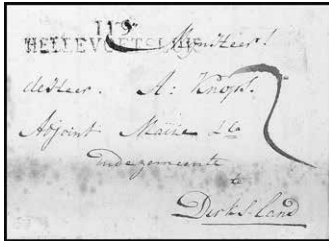 119
HELLEVOETSLUIS
Mynheer!
de Heer. A: Knöps.
Adjoint Maire &c
in de gemeente
te
Dirksland